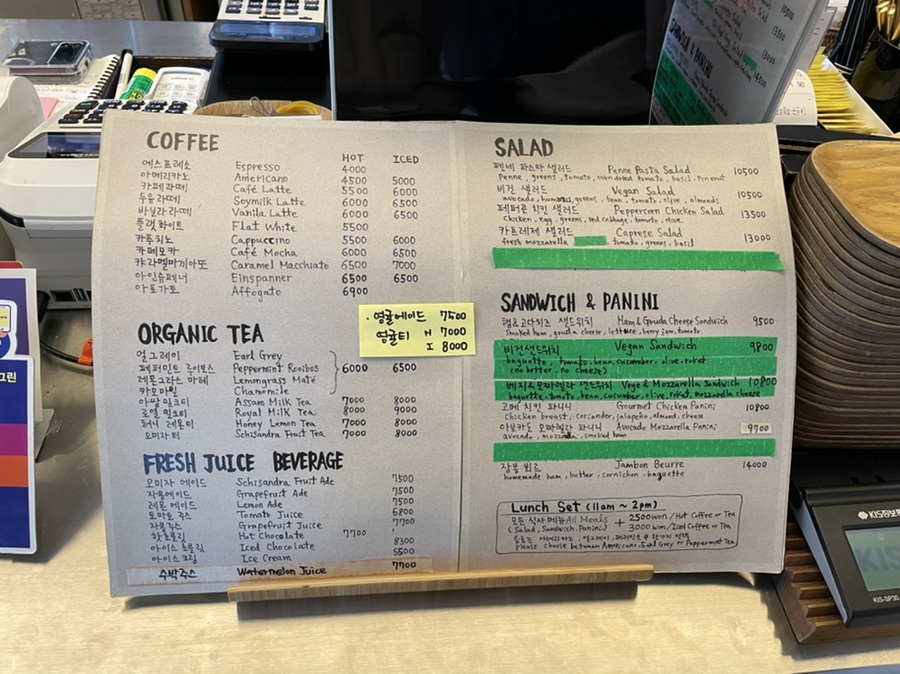 COFFEE
HOT ICED
에스프레소 Espresso 4000
아메리카노 Americano 4500 5000
카페라떼 Café Latte 5500 6000
두유라떼 Soymilk Latte 6000 6500
바닐라라떼 Vanila Latte 6000 6500
플랫화이트 Flat White 5500
카푸치노 Cappuccino 5500 6000
카페모카 Café Mocha 6000 6500
캬라멜마끼아또 Caramel Macchiato 6500 7000
아인슈페너 Einspanner 6500 6500
아포가토 Affogato 6900
· 영귤에이드 7500
영귤티 H 7000
I 8000
ORGANIC TEA
얼그레이 Earl Grey
페퍼민트 루이보스 Peppermint Rooibos 6000 6500
레몬그라스 마테 Lemongrass Maté
카모마일 Chamomile
아쌈 밀크티 Assam Milk Tea 7000 8000
로얄 밀크티 Royal Milk Tea 8000 9000
허니 레몬티 Honey Lemon Tea 7000 8000
오미자티 Schisandra Fruit Tea 7000 8000
FRESH JUICE BEVERAGE
오미자 에이드 Schisandra Fruit Ade 7500
자몽에이드 Grapefruit Ade 7500
레몬 에이드 Lemon Ade 7500
토마토 주스 Tomato Juice 6800
자몽주스 Grapefruit Juice 7700
핫초콜릿 Hot Chocolate 7700
아이스 초콜릿 Iced Chocolate 8300
아이스크림 Ice Cream 5500
수박주스 Watermelon Juice 7700
SALAD
펜네 파스타 샐러드 Penne Pasta Salad 10500
Penne, greens, tomato, oven dried tomato, basil, pinenut
비건 샐러드 Vegan Salad 10500
avocado, hummus, greens, bean, tomato, olive, almonds
페퍼콘 치킨 샐러드 Peppercorn Chicken Salad 13500
chicken, egg, greens, red cabbage, tomato, olive
카프레제 샐러드 Caprese Salad 13000
fresh mozzarella tomato, greens, basil
SANDWICH & PANINI
햄&고다치즈 샌드위치 Ham & Gouda Cheese Sandwich 9500
smoked ham, gouda cheese, lettuce, berry jam, tomato
비건샌드위치 Vegan Sandwich 9800
baguette, tomato, bean, cucumber, olive, roket
(no butter, no cheese)
베지&모짜렐라 샌드위치 Vege & Mozzarella Sandwich 10800
baguette, tomato, bean, cucumber, olive, roket, mozzarella cheese
고메 치킨 파니니 Gourmet Chicken Panini 10800
Chicken breast, coriander, jalapeño, almond, cheese
아보카도 모짜렐라 파니니 Avocado Mozzarella Panini 9700
avocado, smoked ham
장봉 뵈르 Jambon Beurre 14000
homemade ham, butter, cornichon, baguette
Lunch Set (11am ~ 2pm)
모든 식사 메뉴 All Meals + 2500won / Hot Coffee or Tea
(Salad, Sandwich, Panini) 3000won / Iced Coffee or Tea
please choose between Americano, Earl Grey or Peppermint Tea
SANDWICH & PANINI
KIS정보통신
KIS
KIS-SP30
그린